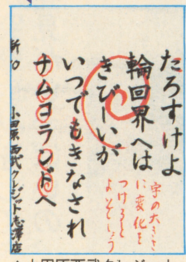 たろすけよ
輪回界へは
きびーいが
いつでもきなされ
ナムコランドへ
字の大きさ
に変化を
つけると
小田原西武
新10